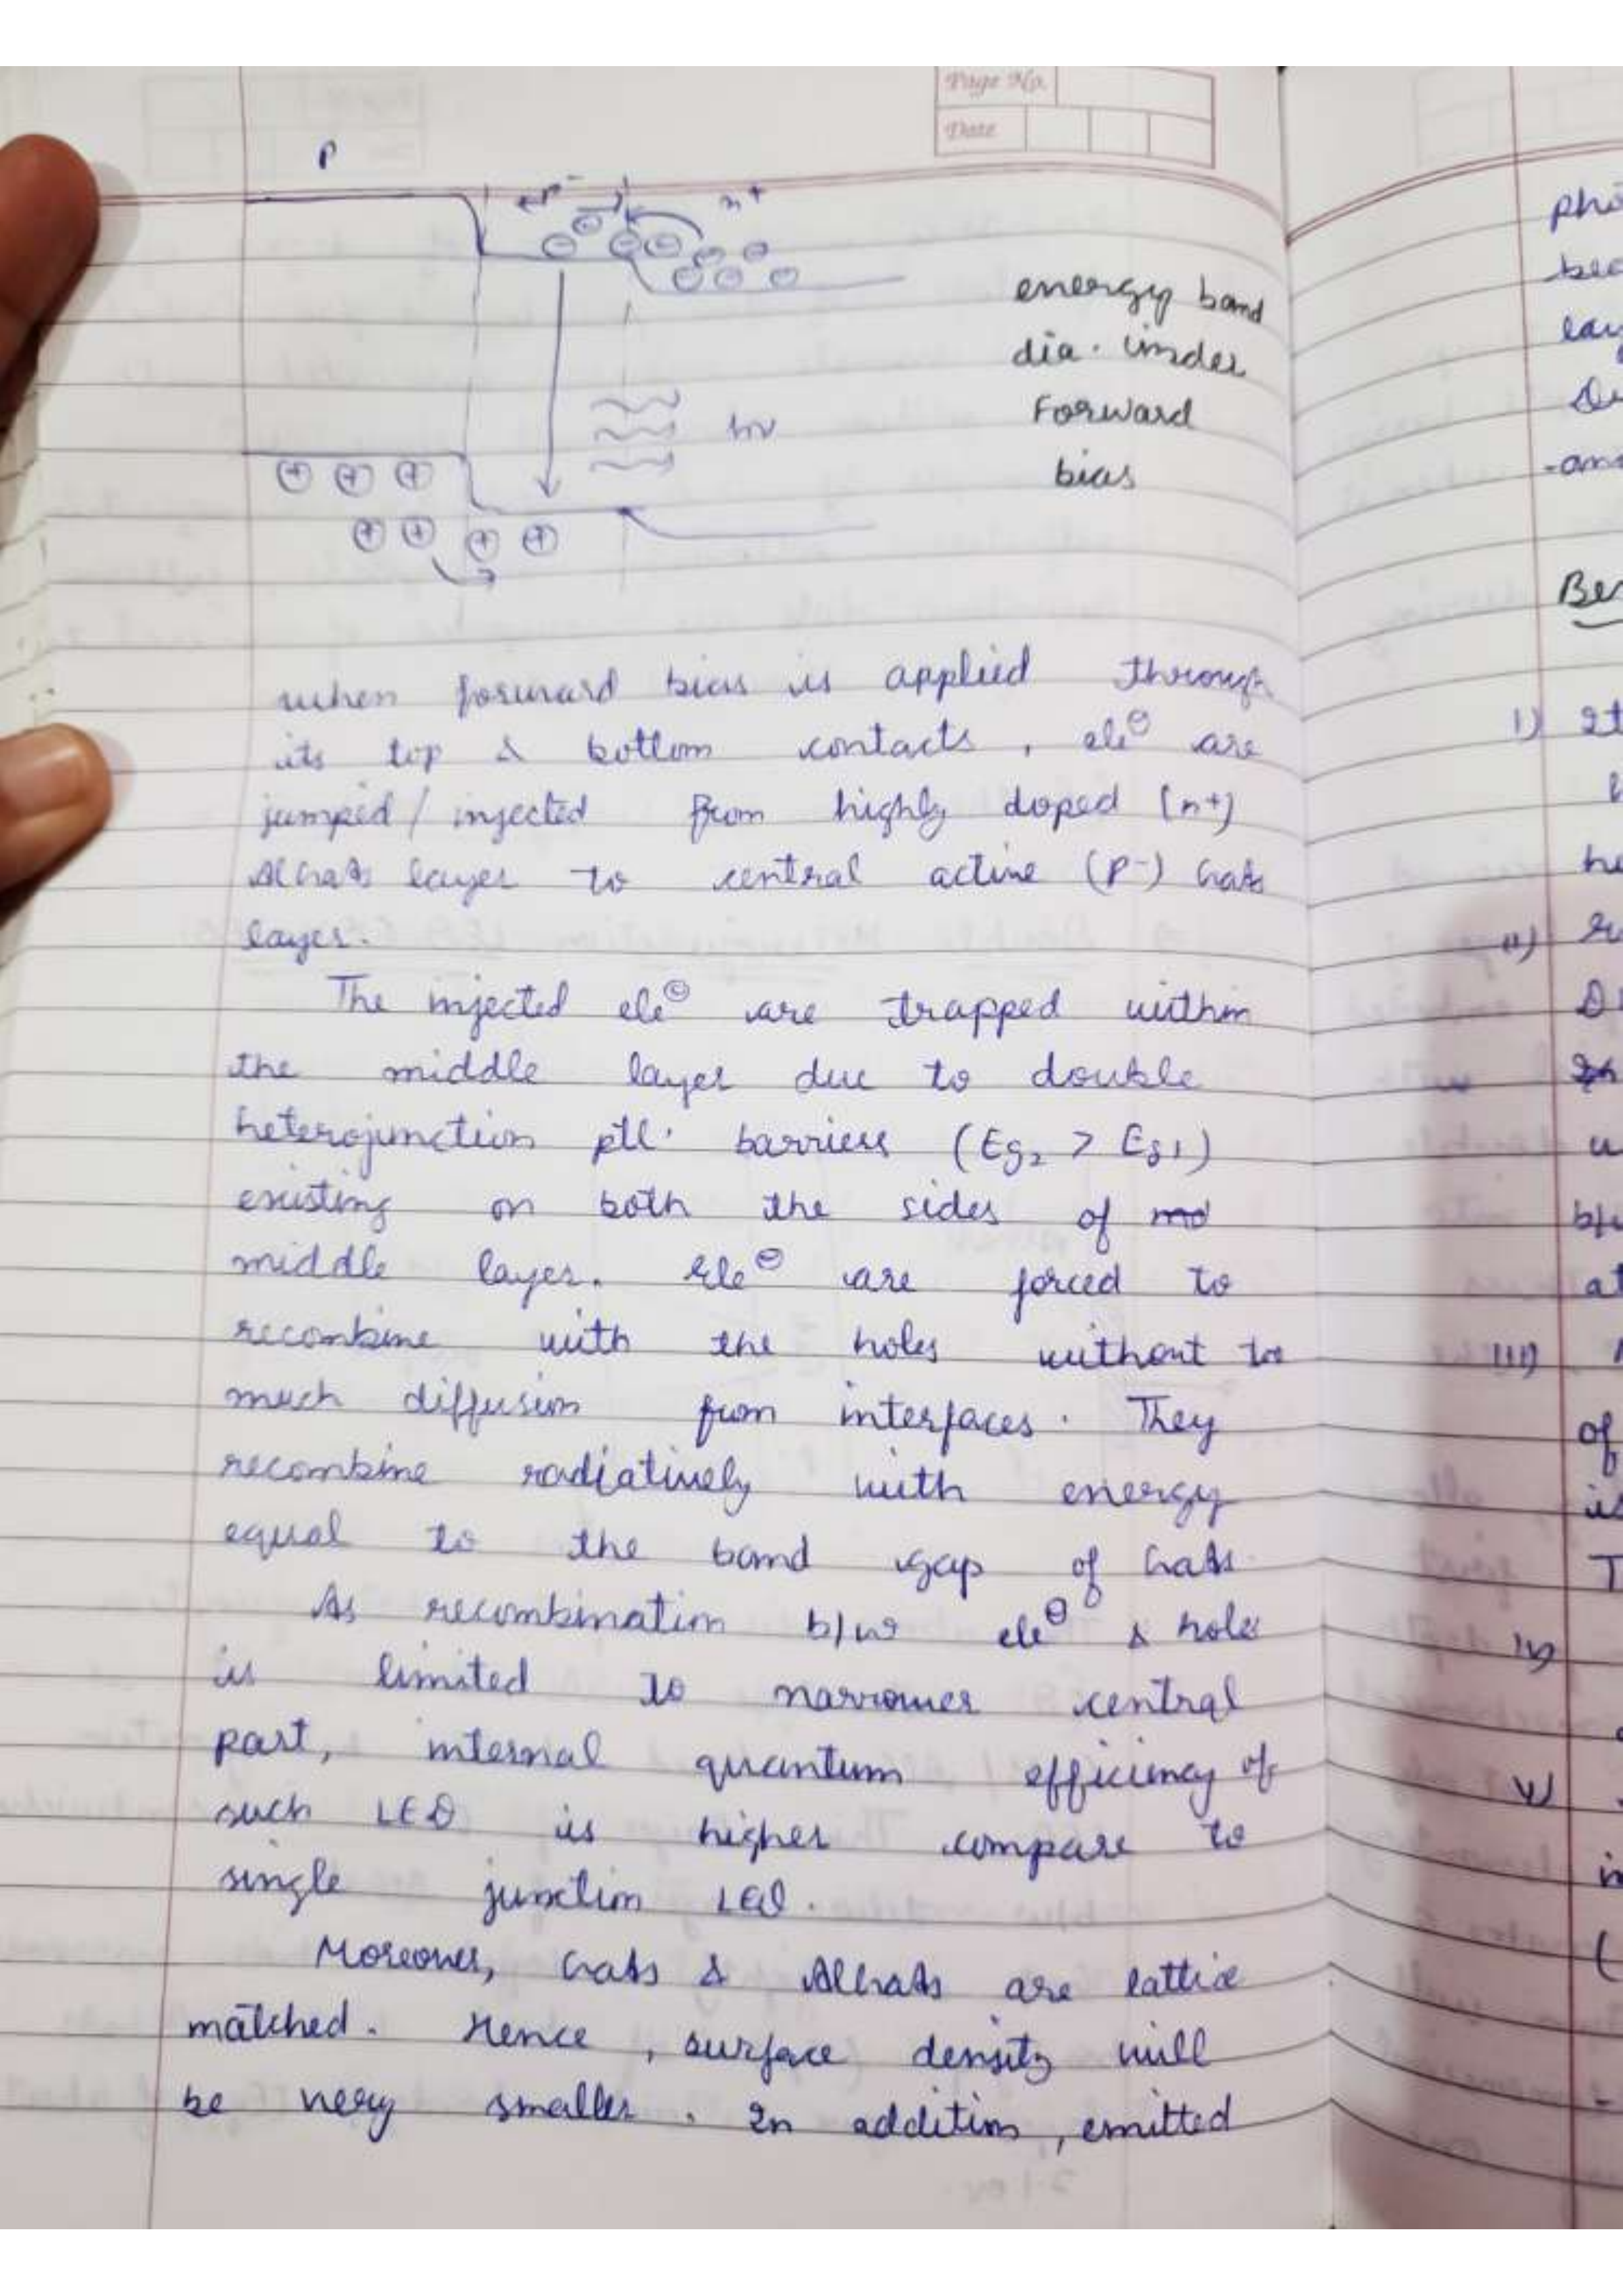 Page No.
Date
P
p-
n+
hν
energy band
dia. under
Forward
bias
when forward bias is applied through
its top & bottom contacts, ele⊖ are
jumped/injected from highly doped (n+)
AlGaAs layer to central active (p-) GaAs
layer.
The injected ele⊖ are trapped within
the middle layer due to double
heterojunction ptl. barriers (Eg2 > Eg1)
existing on both the sides of
middle layer. Ele⊖ are forced to
recombine with the holes without too
much diffusion from interfaces. They
recombine radiatively with energy
equal to the band gap of GaAs.
As recombination b/w ele⊖ & holes
is limited to narrower central
part, internal quantum efficiency of
such LED is higher compare to
single junction LED.
Moreover, GaAs & AlGaAs are lattice
matched. Hence, surface density will
be very smaller. In addition, emitted
pho
Ber
i)
ii)
iii)
of
iv)
v)